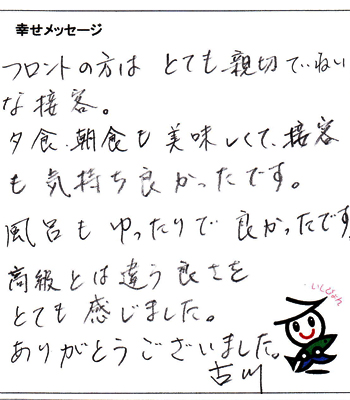 幸せメッセージ
フロントの方は とても親切でていねい
な接客。
夕食、朝食も美味しくて、接客
も気持ち良かったです。
風呂もゆったりで良かったです
高級とは違う良さを
とても感じました。
ありがとうございました。
古川